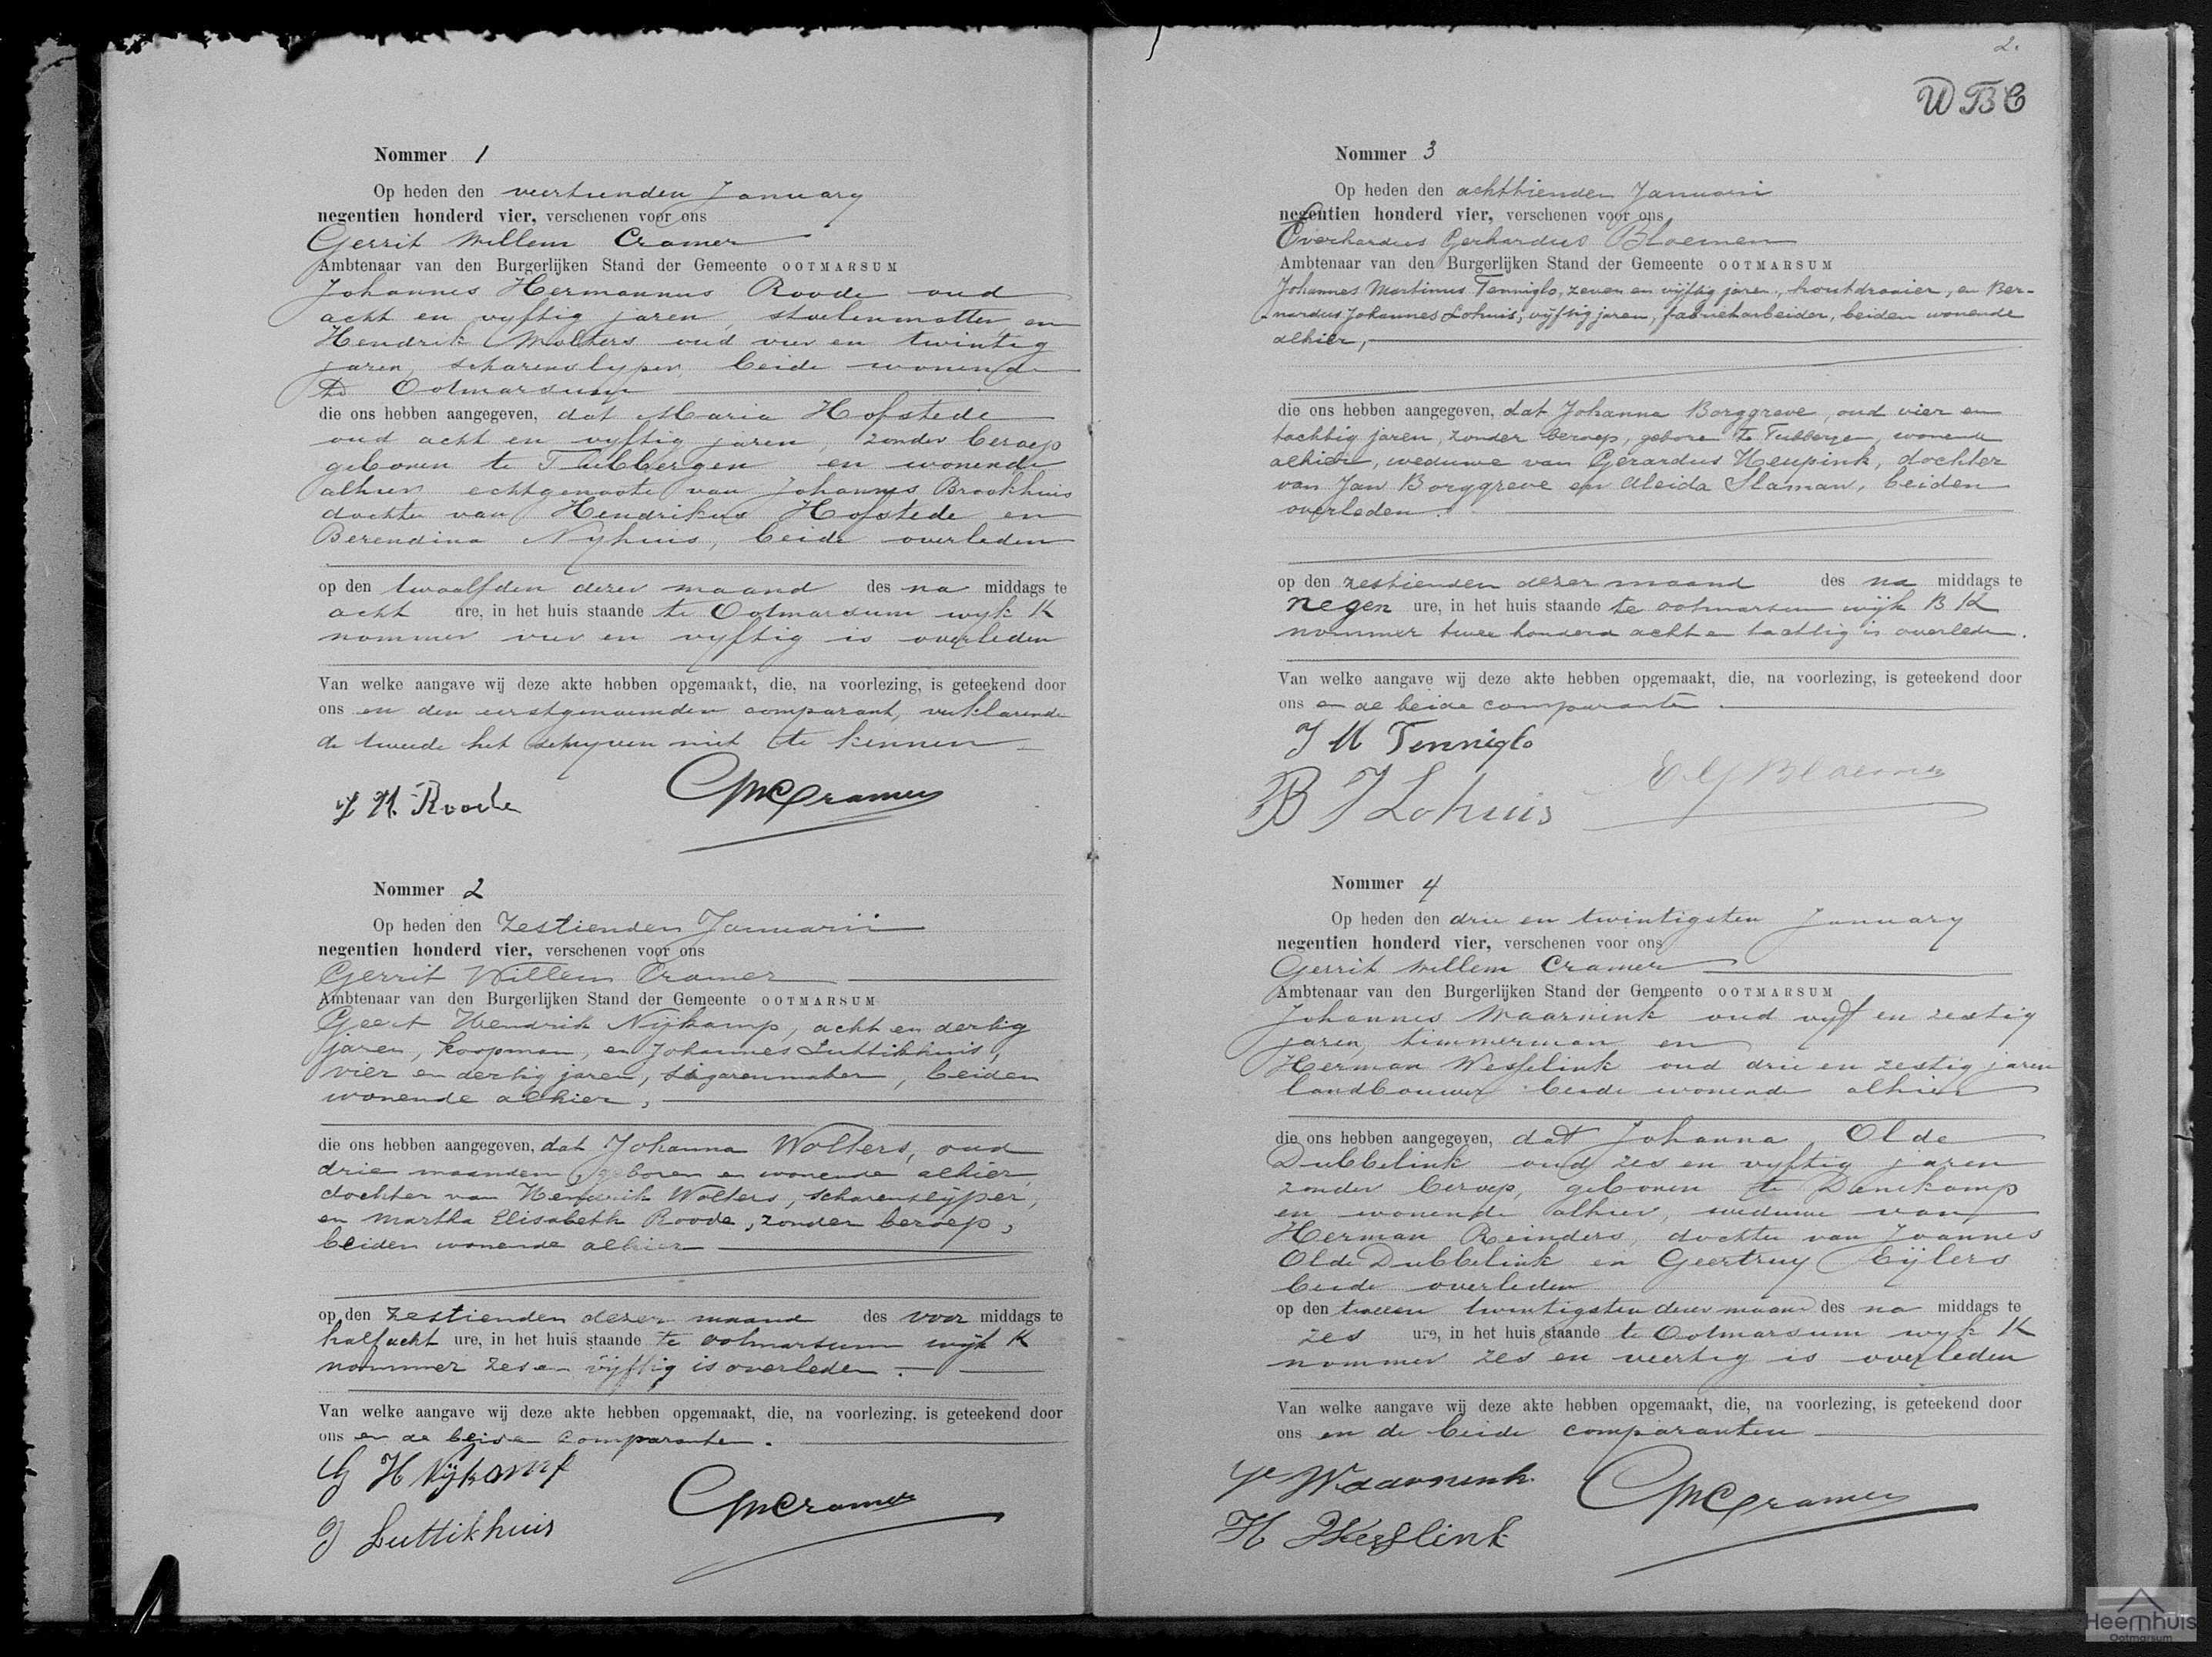 Nommer 1
Op heden den veertienden January
negentien honderd vier, verschenen voor ons
Gerrit Willem Cramer
Ambtenaar van den Burgerlijken Stand der Gemeente OOTMARSUM
Johannes Hermannus Roode oud
acht en vyftig jaren, stoelenmatter en
Hendrik Wolters oud vier en twintig
jaren, scharenslyper, beide wonende
te Ootmarsum
die ons hebben aangegeven, dat Maria Hofstede
oud acht en vyftig jaren, zonder beroep
geboren te Tubbergen en wonende
alhier echtgenoote van Johannes Brookhuis
dochter van Hendrikus Hofstede en
Berendina Nyhuis, beide overleden
op den twaalfden dezer maand des na middags te
acht ure, in het huis staande te Ootmarsum wyk K
nommer vier en vyftig is overleden
Van welke aangave wij deze akte hebben opgemaakt, die, na voorlezing, is geteekend door
ons en den eerstgenoemden comparant, verklarende
de tweede het schryven niet te kennen
J H Roode
GWCramer
Nommer 2
Op heden den Zestienden Januarii
negentien honderd vier, verschenen voor ons
Gerrit Willem Cramer
Ambtenaar van den Burgerlijken Stand der Gemeente OOTMARSUM
Geert Hendrik Nijkamp, acht en dertig
jaren, koopman, en Johannes Luttikhuis,
vier en dertig jaren, sigarenmaker, beiden
wonende alhier,
die ons hebben aangegeven, dat Johanna Wolters, oud
drie maanden, geboren en wonende alhier,
dochter van Hendrik Wolters, scharenslijper,
en Martha Elisabeth Roode, zonder beroep,
beiden wonende alhier
op den zestienden dezer maand des voor middags te
half acht ure, in het huis staande te ootmarsum wijk K
nommer zes en vijftig is overleden.
Van welke aangave wij deze akte hebben opgemaakt, die, na voorlezing, is geteekend door
ons en de beide comparanten.
G H Nijkamp
J Luttikhuis
GWCramer
2.
WBC
Nommer 3
Op heden den achttienden Januari
negentien honderd vier, verschenen voor ons
Everhardus Gerhardus Bloemen
Ambtenaar van den Burgerlijken Stand der Gemeente OOTMARSUM
Johannes Martinus Tenniglo, zeven en vijftig jaren, houtdraaier, en Ber-
nardus Johannes Lohuis, vijftig jaren, fabriekarbeider, beiden wonende
alhier,
die ons hebben aangegeven, dat Johanna Borggreve, oud vier en
tachtig jaren, zonder beroep, geboren te Tubbergen, wonende
alhier, weduwe van Gerardus Heupink, dochter
van Jan Borggreve en Aleida Slaman, beiden
overleden.
op den zestienden dezer maand des na middags te
negen ure, in het huis staande te ootmarsum wijk B K
nommer twee honderd acht en tachtig is overleden.
Van welke aangave wij deze akte hebben opgemaakt, die, na voorlezing, is geteekend door
ons en de beide comparanten.
J M Tenniglo
E G Bloemen
B J Lohuis
Nommer 4
Op heden den drie en twintigsten January
negentien honderd vier, verschenen voor ons
Gerrit Willem Cramer
Ambtenaar van den Burgerlijken Stand der Gemeente OOTMARSUM
Johannes Waarnink oud vyf en zestig
jaren, timmerman en
Herman Wesselink oud drie en zestig jaren
landbouwer beide wonende alhier
die ons hebben aangegeven, dat Johanna Olde
Dubbelink oud zes en vyftig jaren
zonder beroep, geboren te Denekamp
en wonende alhier, weduwe van
Herman Reinders, dochter van Joannes
Olde Dubbelink en Geertruy Eijlers
beide overleden
op den twee en twintigsten dezer maand des na middags te
zes ure, in het huis staande te Ootmarsum wyk K
nommer zes en veertig is overleden
Van welke aangave wij deze akte hebben opgemaakt, die, na voorlezing, is geteekend door
ons en de beide comparanten
Waarnink
GWCramer
H Wesslink
Heemhuis
Ootmarsum